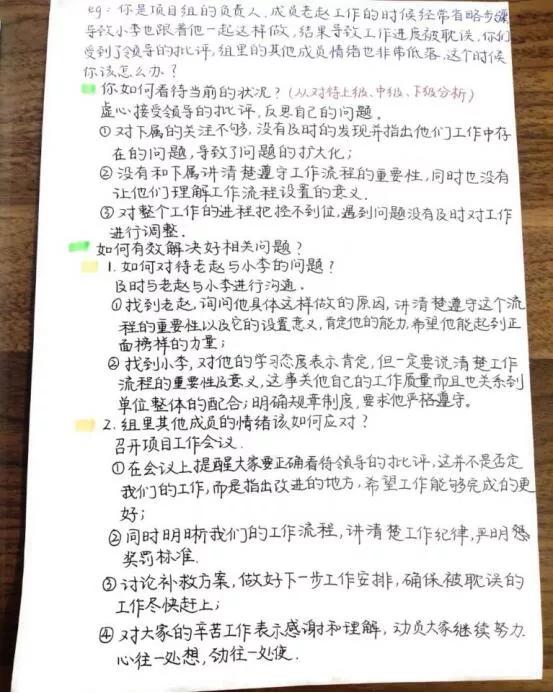 eg：你是项目组的负责人，成员老赵工作的时候经常省略步骤
导致小李也跟着他一起这样做，结果导致工作进度被耽误，你们
受到了领导的批评，组里的其他成员情绪也非常低落，这个时候
你该怎么办？
你如何看待当前的状况？（从对待上级、中级、下级分析）
虚心接受领导的批评，反思自己的问题。
①对下属的关注不够，没有及时的发现并指出他们工作中存
在的问题，导致了问题的扩大化；
②没有和下属讲清楚遵守工作流程的重要性，同时也没有
让他们理解工作流程设置的意义.
③对整个工作的进程把控不到位，遇到问题没有及时对工作
进行调整.
如何有效解决好相关问题？
1.如何对待老赵与小李的问题？
及时与老赵与小李进行沟通.
①找到老赵，询问他具体这样做的原因，讲清楚遵守这个流
程的重要性以及它的设置意义，肯定他的能力，希望他能起到正
面榜样的力量；
②找到小李，对他的学习态度表示肯定，但一定要说清楚工作
流程的重要性及意义，这事关他自己的工作质量而且也关系到
单位整体的配合；明确规章制度，要求他严格遵守。
2.组里其他成员的情绪该如何应对？
召开项目工作会议.
①在会议上提醒大家要正确看待领导的批评，这并不是否定
我们的工作，而是指出改进的地方，希望工作能够完成的更
好；
②同时明晰我们的工作流程，讲清楚工作纪律，严明
奖罚标准.
③讨论补救方案，做好下一步工作安排，确保被耽误的
工作尽快赶上；
④对大家的辛苦工作表示感谢和理解，动员大家继续努力.
心往一处想，劲往一处使.